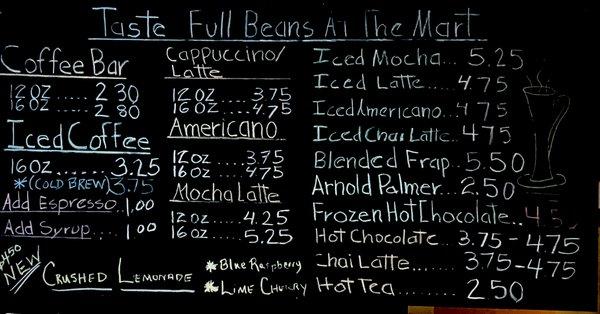 Taste Full Beans At The Mart
Coffee Bar
12 oz ..... 2 30
16 oz ..... 2 80
Iced Coffee
16 oz ..... 3.25
*(Cold Brew) 3.75
Add Espresso .. 1.00
Add Syrup .... 1.00
$4.50
NEW
Crushed Lemonade
* Blue Raspberry
* Lime Cherry
Cappuccino/
Latte
12 oz .... 3.75
16 oz .... 4.75
Americano
12 oz .... 3.75
16 oz .... 4.75
Mocha Latte
12 oz .... 4.25
16 oz .... 5.25
Iced Mocha .. 5.25
Iced Latte ... 4.75
Iced Americano .. 4.75
Iced Chai Latte .. 4.75
Blended Frap .. 5.50
Arnold Palmer .. 2.50
Frozen Hot Chocolate ..
Hot Chocolate .. 3.75 - 4.75
Chai Latte ...... 3.75 - 4.75
Hot Tea ......... 2.50